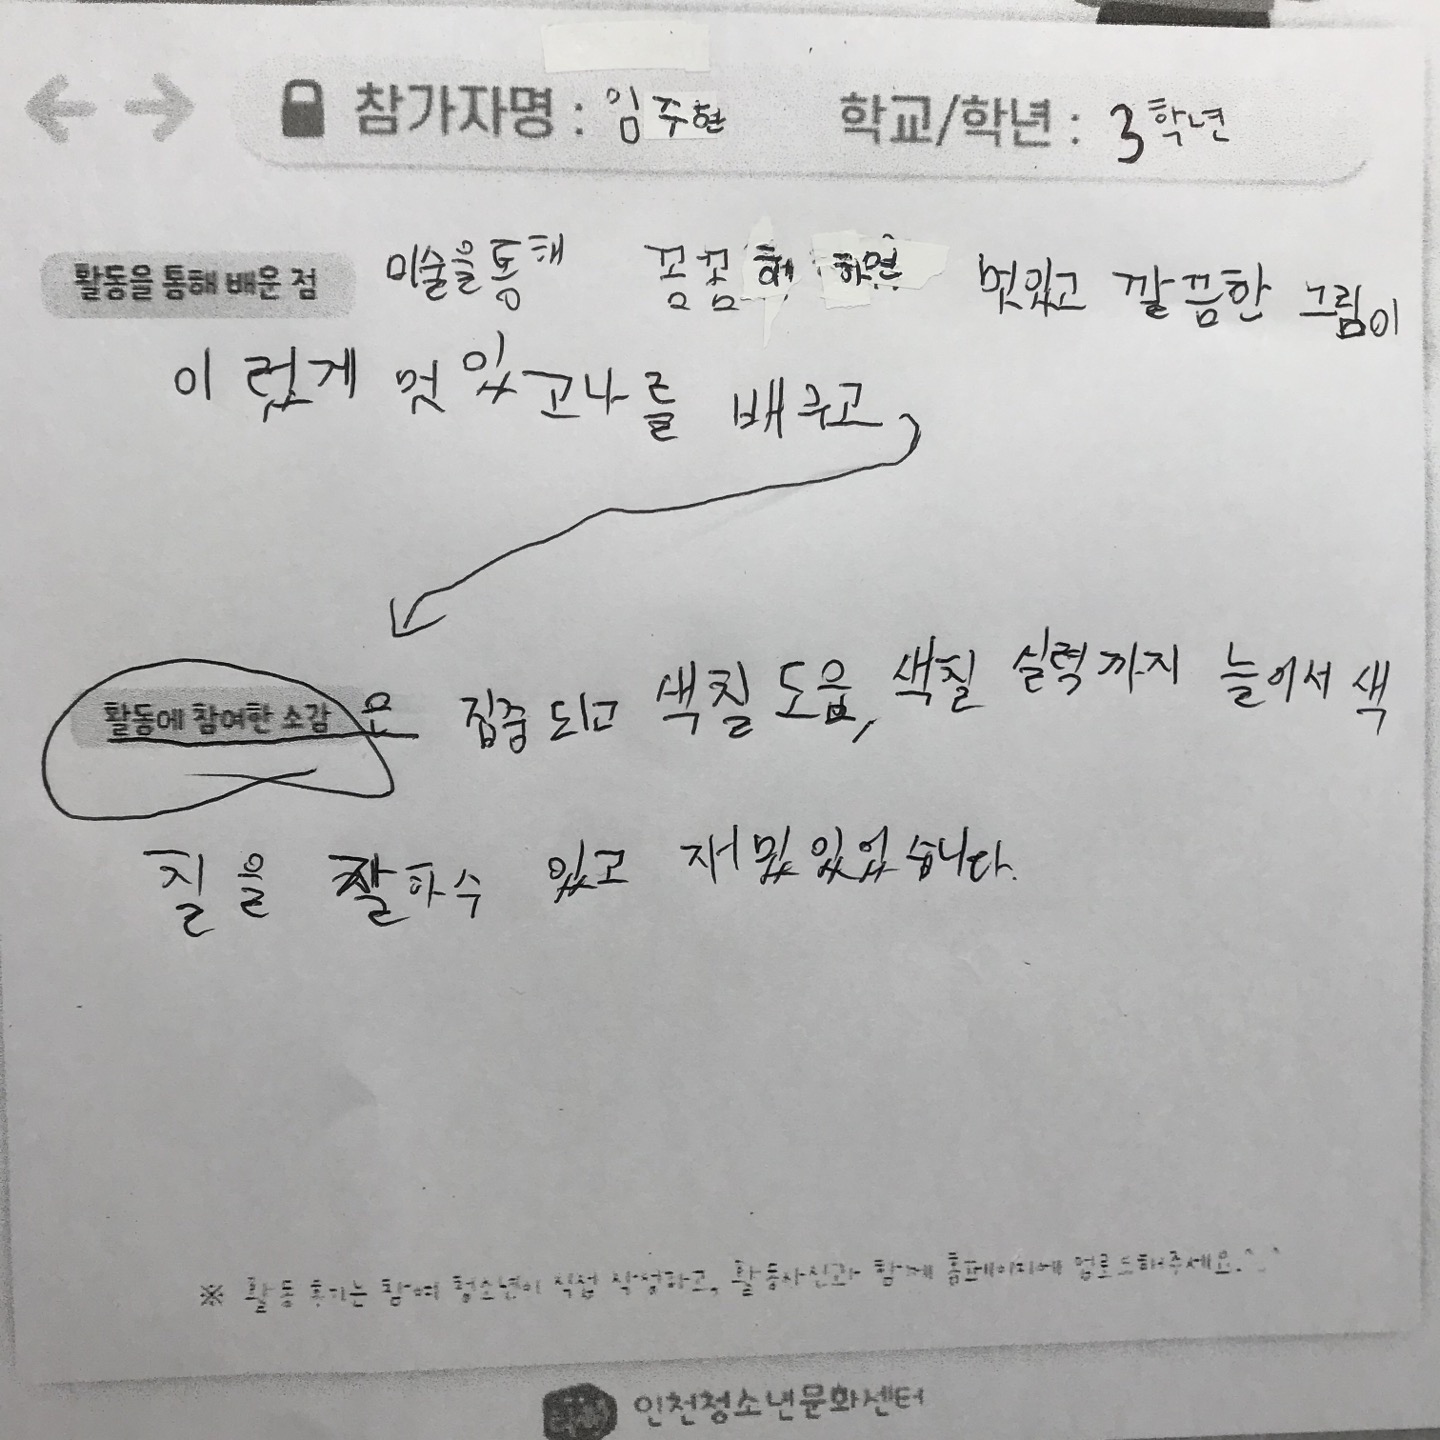 참가자명 : 임주현 학교/학년 : 3학년
활동을 통해 배운 점 미술을통해 꼼꼼해 하면 멋있고 깔끔한 그림이
이렀게 멋있고나를 배우고,
활동에 참여한 소감 요 집중되고 색칠도움, 색칠 실력까지 늘어서 색
칠을 잘하수 있고 재밌있었습니다.
※ 활동 후기는 참여 청소년이 직접 작성하고, 활동사진과 함께 홈페이지에 업로드해주세요.^^
인천청소년문화센터